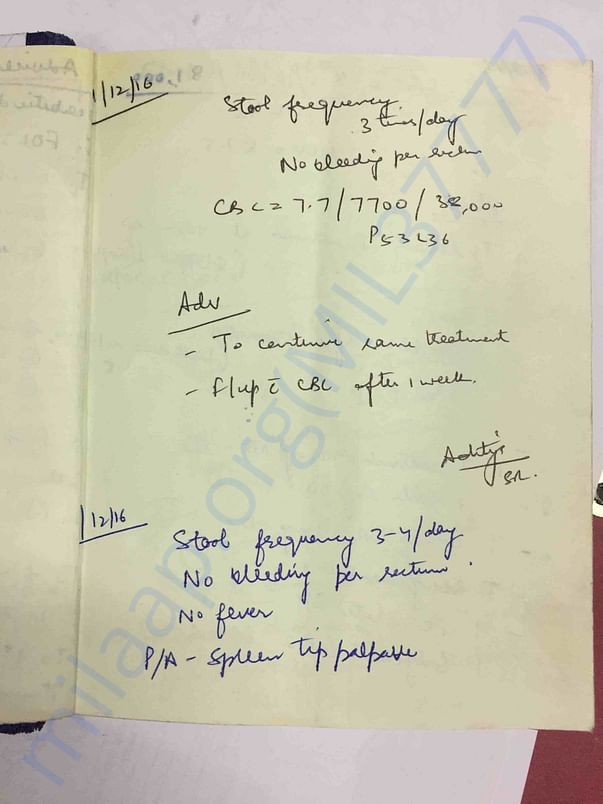 1/12/16
Stool frequency
3 times/day
No bleeding per rectum
CBC = 7.7/7700/38,000
P53 L36
Adv
- To continue same treatment
- F/up c̄ CBC after 1 week.
Aditya
SR.
12/16
Stool frequency 3-4/day
No bleeding per rectum.
No fever
P/A - Spleen tip palpable
milaap.org(MIL37777)